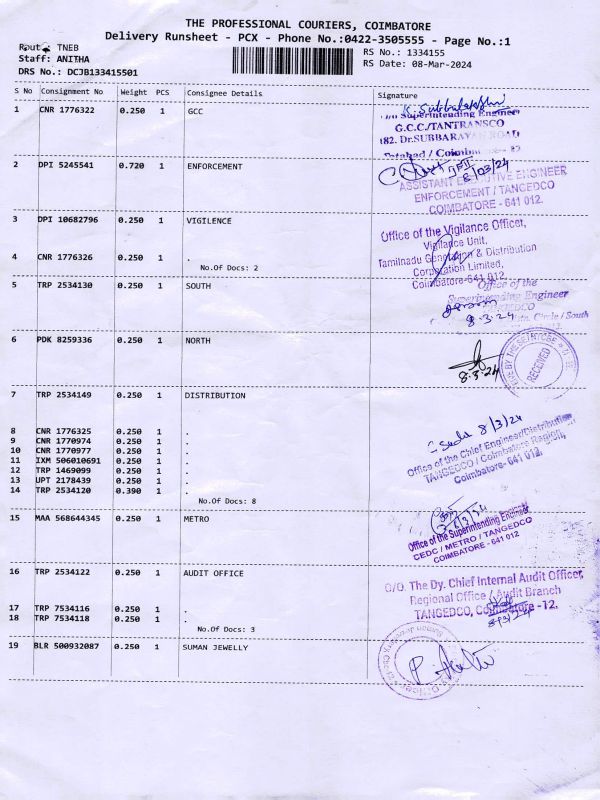 THE PROFESSIONAL COURIERS, COIMBATORE
Delivery Runsheet - PCX - Phone No.:0422-3505555 - Page No.:1
Route: TNEB
Staff: ANITHA
DRS No.: DCJB133415501
RS No.: 1334155
RS Date: 08-Mar-2024
S No Consignment No Weight PCS Consignee Details Signature
1 CNR 1776322 0.250 1 GCC
Superintending Engineer
G.C.C./TANTRANSCO
182. Dr.SUBBARAYAN ROAD
2 DPI 5245541 0.720 1 ENFORCEMENT
8/03/24
ASSISTANT EXECUTIVE ENGINEER
ENFORCEMENT / TANGEDCO
COIMBATORE - 641 012.
3 DPI 10682796 0.250 1 VIGILENCE
Office of the Vigilance Officer,
Vigilance Unit,
Tamilnadu Generation & Distribution
Corporation Limited,
Coimbatore-641 012.
4 CNR 1776326 0.250 1 .
No.Of Docs: 2
5 TRP 2534130 0.250 1 SOUTH
Office of the
Superintending Engineer
8.3.24
Circle / South
6 PDK 8259336 0.250 1 NORTH
8.3.24
RECEIVED
7 TRP 2534149 0.250 1 DISTRIBUTION
8/3/24
Office of the Chief Engineer/Distribution
TANGEDCO / Coimbatore Region,
Coimbatore- 641 012.
8 CNR 1776325 0.250 1 .
9 CNR 1770974 0.250 1 .
10 CNR 1770977 0.250 1 .
11 IXM 506010691 0.250 1 .
12 TRP 1469099 0.250 1 .
13 UPT 2178439 0.250 1 .
14 TRP 2534120 0.390 1 .
No.Of Docs: 8
15 MAA 568644345 0.250 1 METRO
Office of the Superintending Engineer
CEDC / METRO / TANGEDCO
COIMBATORE - 641 012
16 TRP 2534122 0.250 1 AUDIT OFFICE
O/O. The Dy. Chief Internal Audit Officer,
Regional Office / Audit Branch
TANGEDCO, Coimbatore -12.
8/3/24
17 TRP 7534116 0.250 1 .
18 TRP 7534118 0.250 1 .
No.Of Docs: 3
19 BLR 500932087 0.250 1 SUMAN JEWELLY